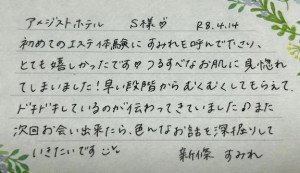 アメジストホテル S様♡ R8.4.14
初めてのエステ体験にすみれを呼んで下さり、
とても嬉しかったです♡つるすべなお肌に見惚れ
てしまいました!早い段階からむくむくしてもらえて、
ドキドキしているのが伝わってきていました♪また
次回お会い出来たら、色んなお話を深堀りして
いきたいです
新條 すみれ